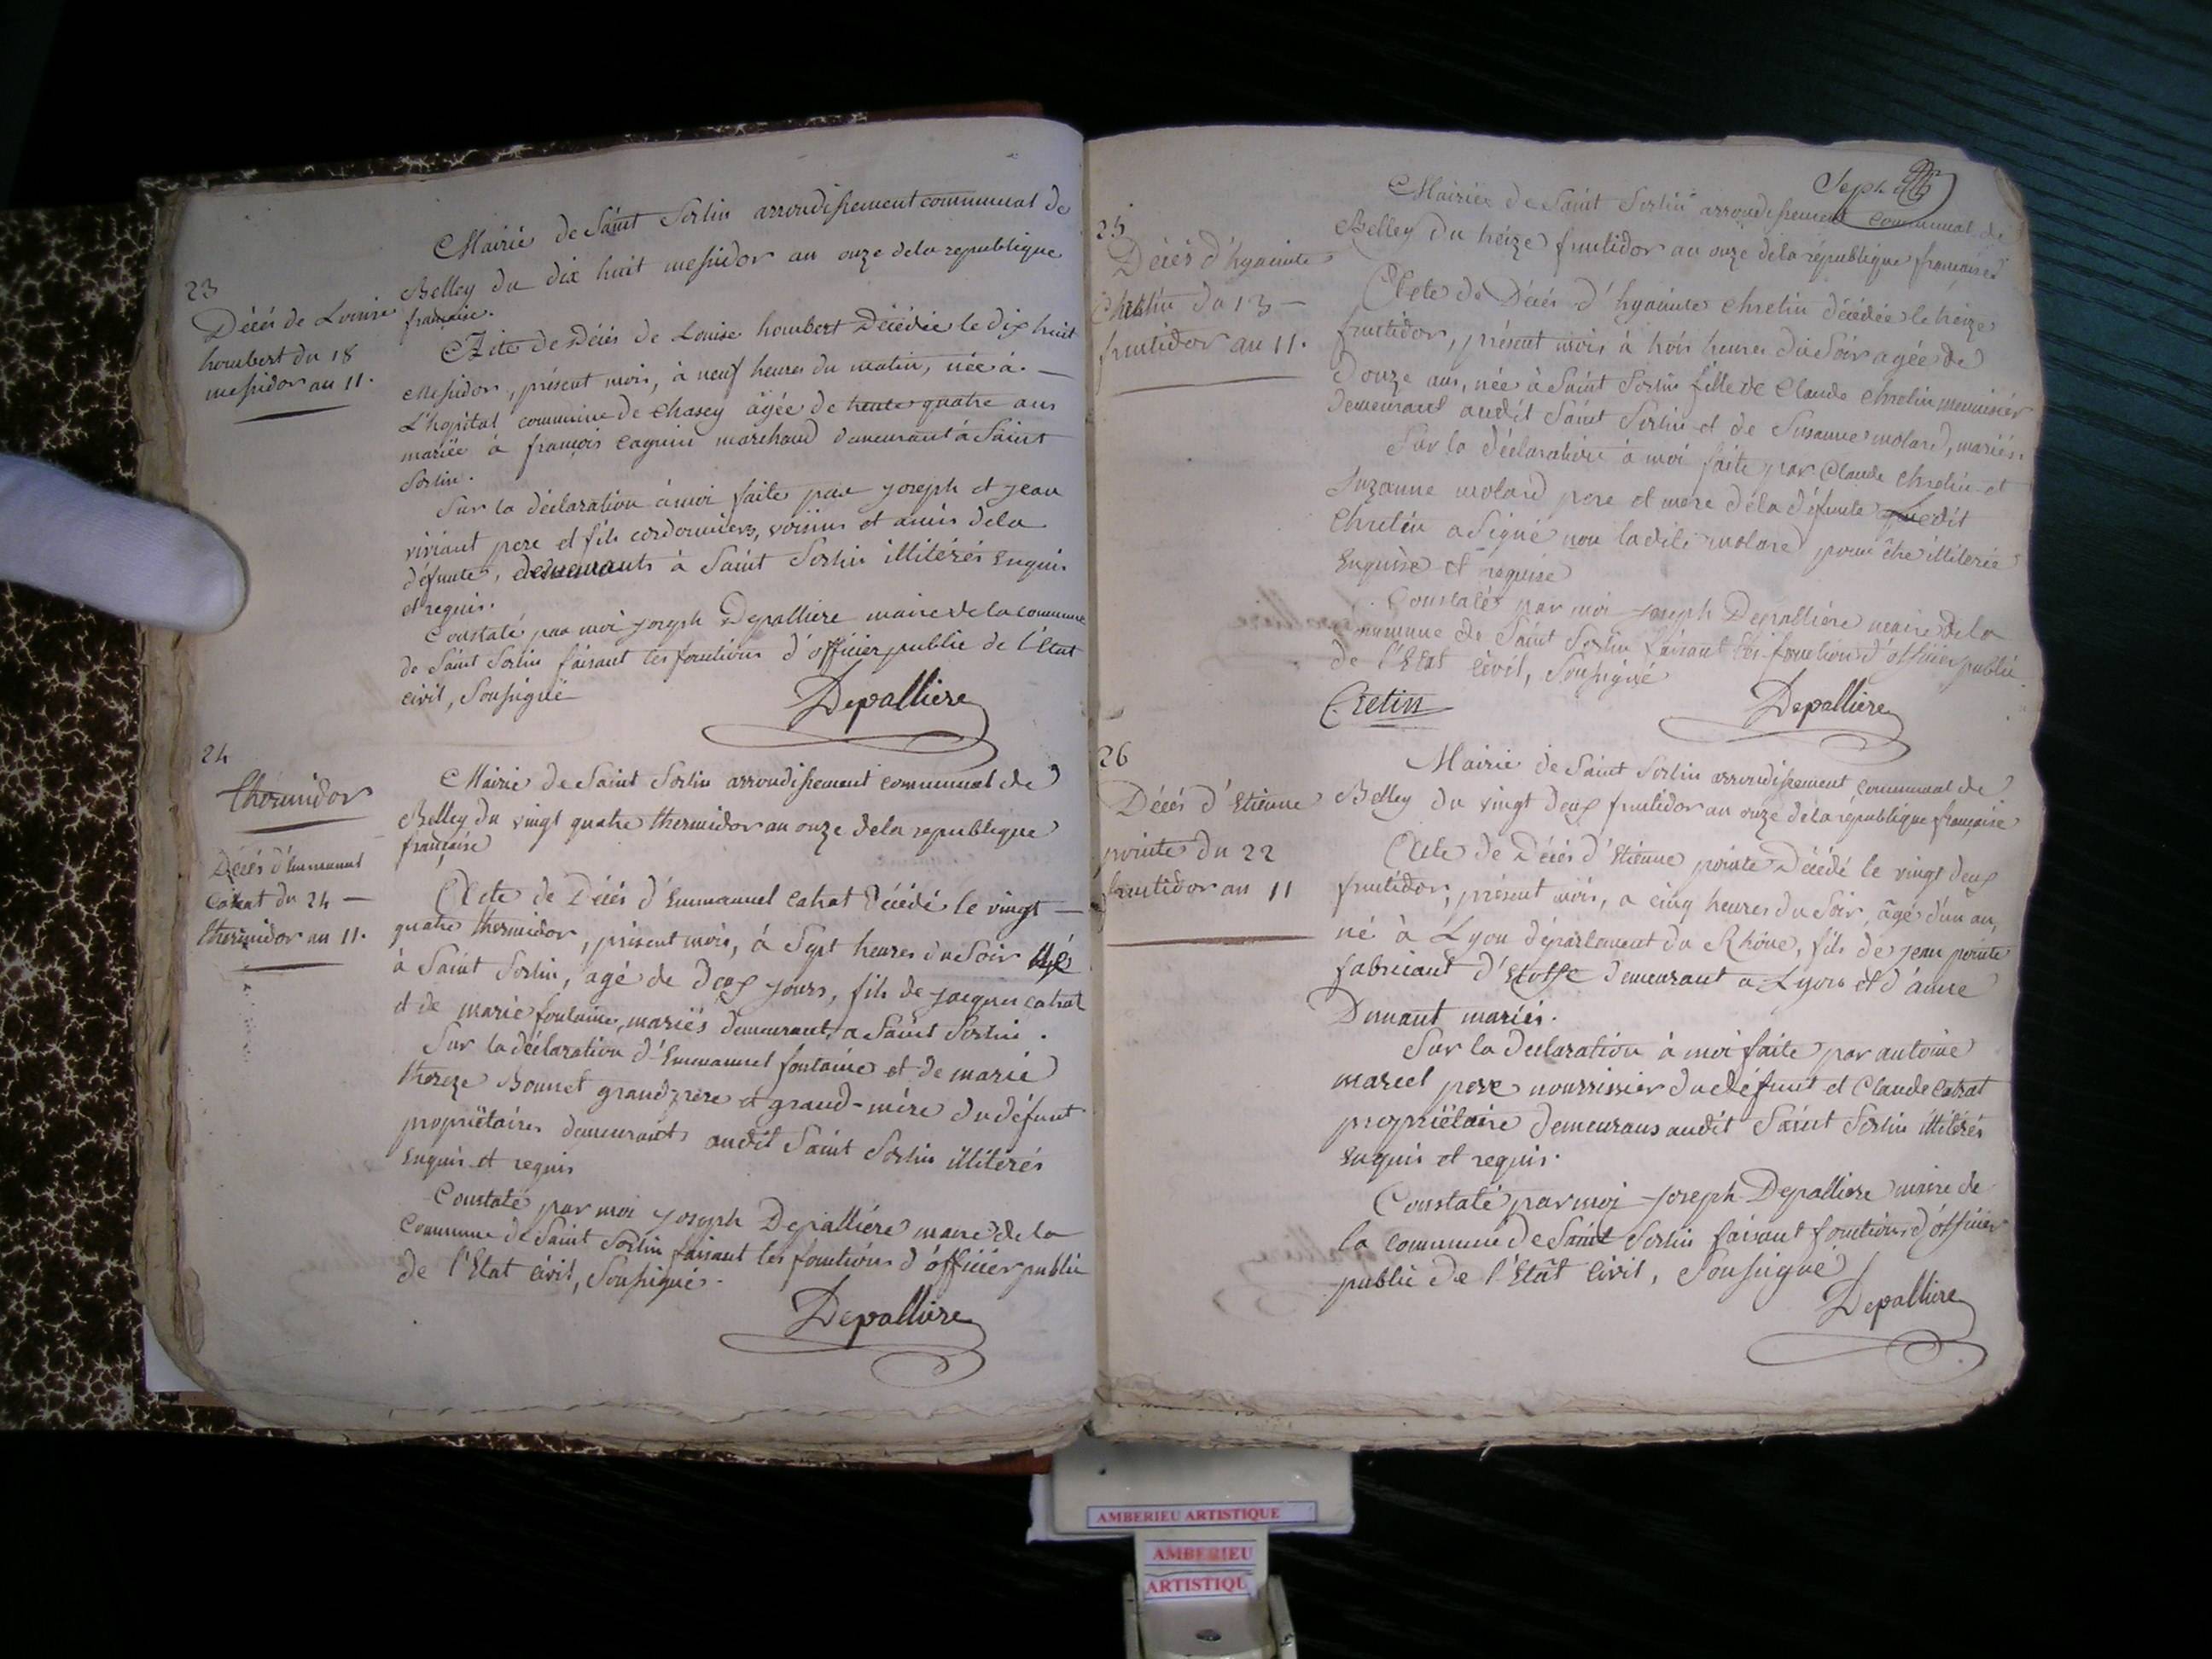 23
Décés de Louise
houmbert du 18
messidor an 11.
Mairie de Saint Sorlin arrondissement communal de
Belley du dix huit messidor an onze de la republique
française.
Acte de Décés de Louise houmbert Décédée le dix huit
messidor, présent mois, à neuf heures du matin, née à
L'hopital commune de Chasey âgée de trente quatre ans
mariée à françois marchand demeurant à Saint
Sorlin.
Sur la déclaration à moi faite par joseph et jean
pere et fils cordonniers, voisins et amis de la
défunte, demeurants à Saint Sorlin illitérés enquis
et requis.
Constaté par moi joseph Depalliere maire de la commune
de Saint Sorlin faisant les fonctions d'officier public de l'Etat
civil, Soussigné
Depalliere
24
thermidor
Décés d'Emmanuel
Catrat du 24
thermidor an 11.
Mairie de Saint Sorlin arrondissement communal de
Belley du vingt quatre thermidor an onze de la republique
française
Acte de Décés d'Emmanuel Catrat Décédé le vingt
quatre thermidor, présent mois, à Sept heures du Soir né
à Saint Sorlin, agé de deux jours, fils de jacques catrat
et de marie fontaine, mariés demeurant a Saint Sorlin.
Sur la déclaration d'Emmanuel fontaine et de marie
thereze Bonnet grand pere et grand-mére du défunt
propriétaires demeurants audit Saint Sorlin illitérés
enquis et requis
Constaté par moi joseph Depalliére maire de la
Commune de Saint Sorlin faisant les fonctions d'officier public
de l'Etat civil, Soussigné.
Depalliere
25
Décés d'hyacinte
Chretin du 13
fructidor an 11.
Mairie de Saint Sorlin arrondissement communal de
Belley du treize fructidor an onze de la république française
Acte de Décés d'hyacinte chretin décédée le treize
fructidor, présent mois à trois heures du Soir agée de
Douze ans, née à Saint Sorlin fille de Claude chretin menuisier
demeurant audit Saint Sorlin et de Susanne molard, mariés.
Sur la déclaration à moi faite par Claude chretin et
Suzanne molard pere et mere de la défunte ledit
Chretin a Signé non ladite molard pour être illiterée
enquise et requise
Constaté par moi joseph Depalliére maire de la
commune de Saint Sorlin faisant les fonctions d'officier public
de l'Etat civil, Soussigné
Cretin
Depalliere
26
Décés d'Etienne
pointe du 22
fructidor an 11
Mairie de Saint Sorlin arrondissement communal de
Belley du vingt deux fructidor an onze de la république française
Acte de Décés d'Etienne pointe Décédé le vingt deux
fructidor, présent mois, a cinq heures du Soir, âgé d'un an,
né à Lyon département du Rhône, fils de jean pointe
fabricant d'Etoffe demeurant a Lyon et d'anne
Dumant mariés.
Sur la declaration à moi faite par antoine
marcel pere nourrissier du défunt et Claude Catrat
propriétaire demeurans audit Saint Sorlin illitérés
enquis et requis.
Constaté par moi joseph Depalliere maire de
la commune de Saint Sorlin faisant fonctions d'officier
public de l'Etat Civil, Soussigné
Depalliere
AMBERIEU ARTISTIQUE
AMBERIEU
ARTISTIQU